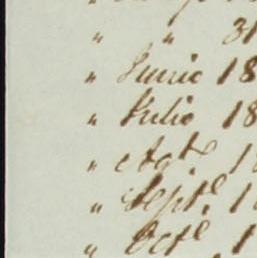 " " 31
" Junio 18
" Julio 18
" Agto 1
" Septe. 1
" Octe. 1